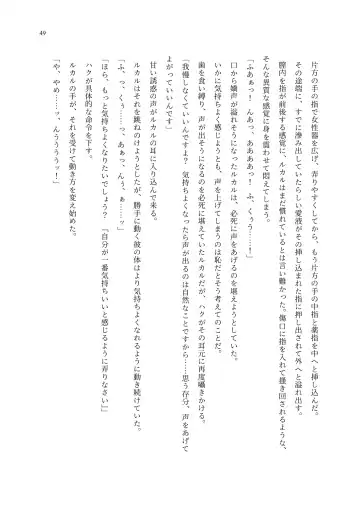 片方の手の指で女性器を広げ、弄りやすくしてから、もう片方の手の中指と薬指を中へと挿し込んだ。
その途端に、すでに滲み出していたらしい愛液がその挿し込まれた指に押し出されて外へと溢れ出す。
膣内を指が前後する感覚に、ルカルはまだ慣れているとは言い難かった。傷口に指を入れて掻き回されるような、
そんな異質な感覚に身を震わせて悶えてしまう。
「ふあぁっ！　んあっ、ああああっ！　ふ、くぅう……っ！」
口から嬌声が溢れそうになったルカルは、必死に声をあげるのを堪えようとしていた。
いかに気持ちよく感じようとも、声を上げてしまうのは恥だとそう考えてのことだった。
歯を食い縛り、声が出そうになるのを必死に堪えていたルカルだが、ハクがその耳元に再度囁きかける。
「我慢しなくていいんですよ？　気持ちよくなったら声が出るのは自然なことですから……思う存分、声をあげて
よがっていいんです」
甘い誘惑の声がルカルの耳に入り込んでくる。
ルカルはそれを跳ねのけようとしたが、勝手に動く彼の体はより気持ちよくなれるように動き続けていた。
「ふ、っ、くぅ……っ、あぁっ、んぅ、ぁ……ッ」
「ほら、もっと気持ちよくなりたいでしょう？　『自分が一番気持ちいいと感じるように弄りなさい』」
ハクが具体的な命令を下す。
ルカルの手が、その命令を受けて動き方を変え始めた。
「や、やめ……ッ、んううううッ！」
49